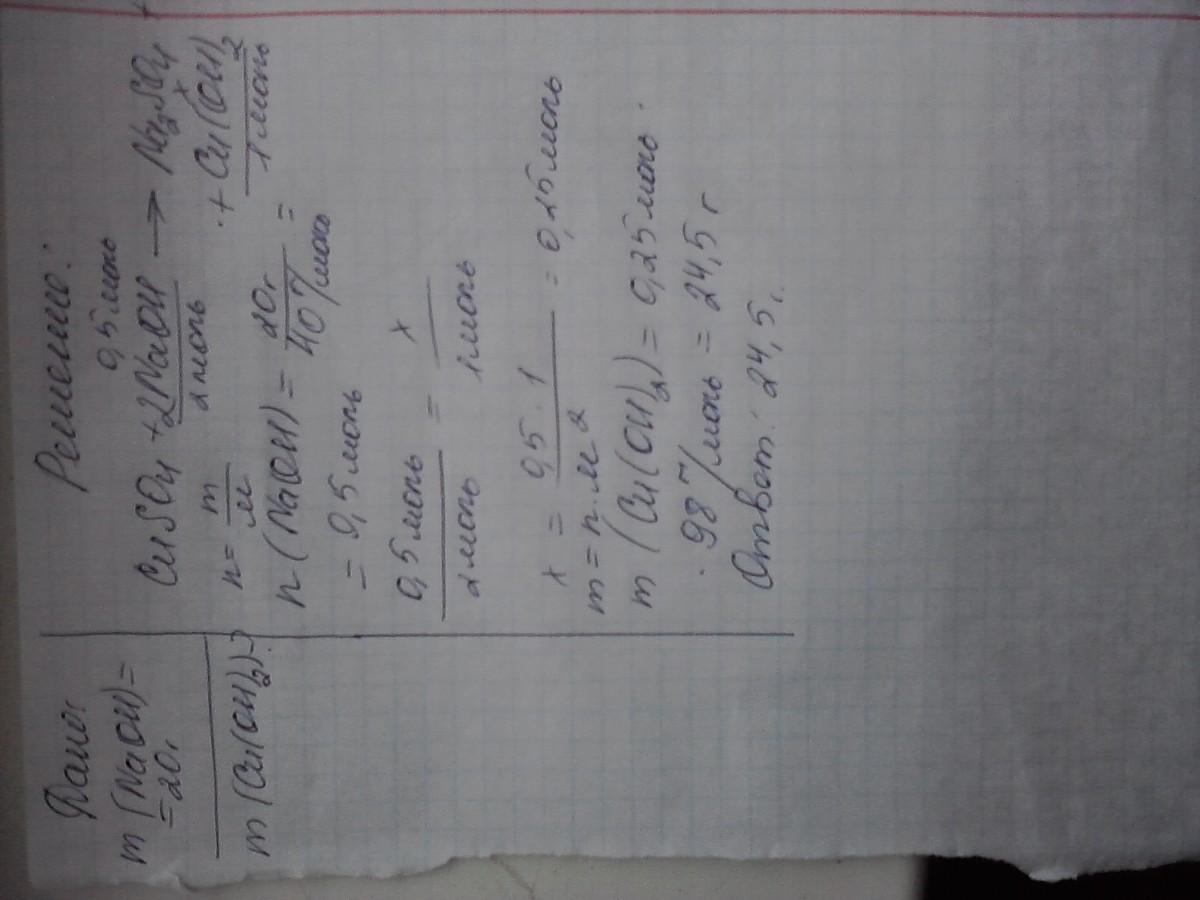 Дано:
m(NaOH)=
=20г
m(Cu(OH)2)-?
Решение:
0,5моль x
CuSO4+2NaOH → Na2SO4
2моль + Cu(OH)2
1моль
n=m/M
n(NaOH)=20г/40г/моль=
=0,5моль
0,5моль/2моль = x/1моль
x = 0,5·1/2 = 0,25моль
m=n·M
m(Cu(OH)2)=0,25моль·
·98г/моль=24,5г
Ответ: 24,5г.